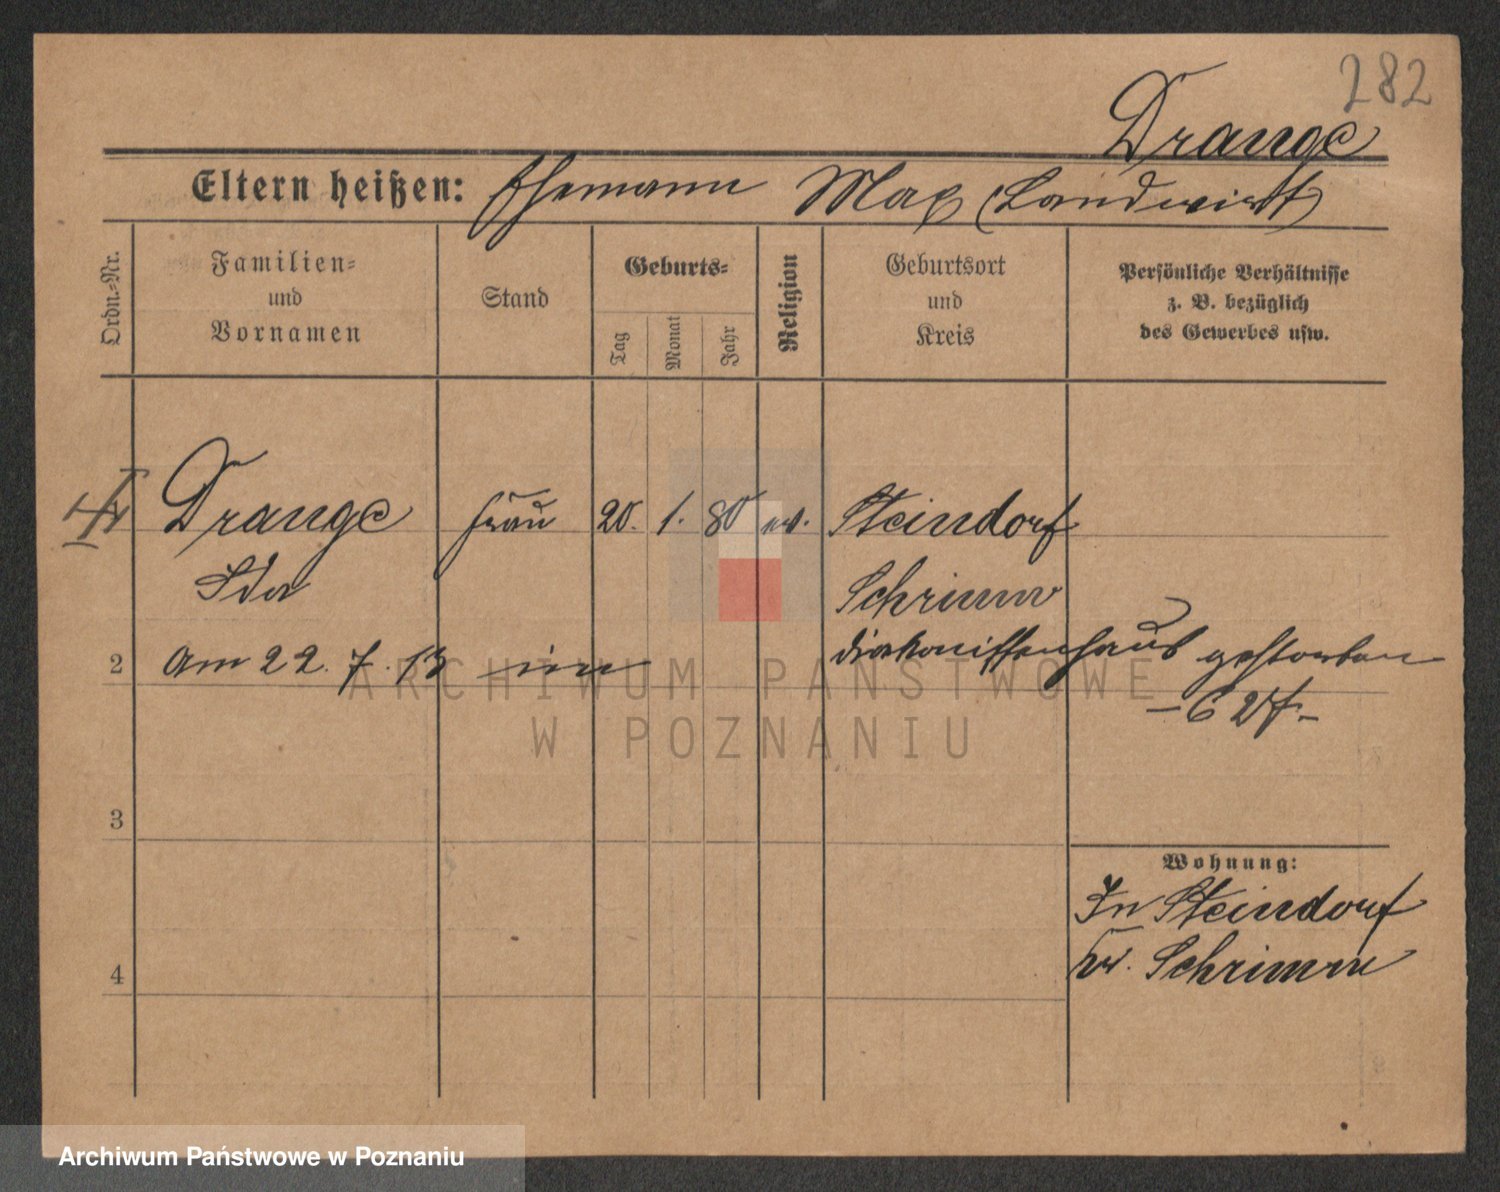 282
Drange
Eltern heißen: Ehemann Max (Landwirt)
Ordn.=Nr.
Familien=
und
Vornamen
Stand
Geburts=
Tag
Monat
Jahr
Religion
Geburtsort
und
Kreis
Persönliche Verhältnisse
z. B. bezüglich
des Gewerbes usw.
Drange Frau 20. 1. 80 ev. Steindorf
Ida Schrimm
2 Am 22. 7. 13 im Diakonissenhaus gestorben
3
Wohnung:
In Steindorf
Kr. Schrimm
4
ARCHIWUM PAŃSTWOWE
W POZNANIU
Archiwum Państwowe w Poznaniu